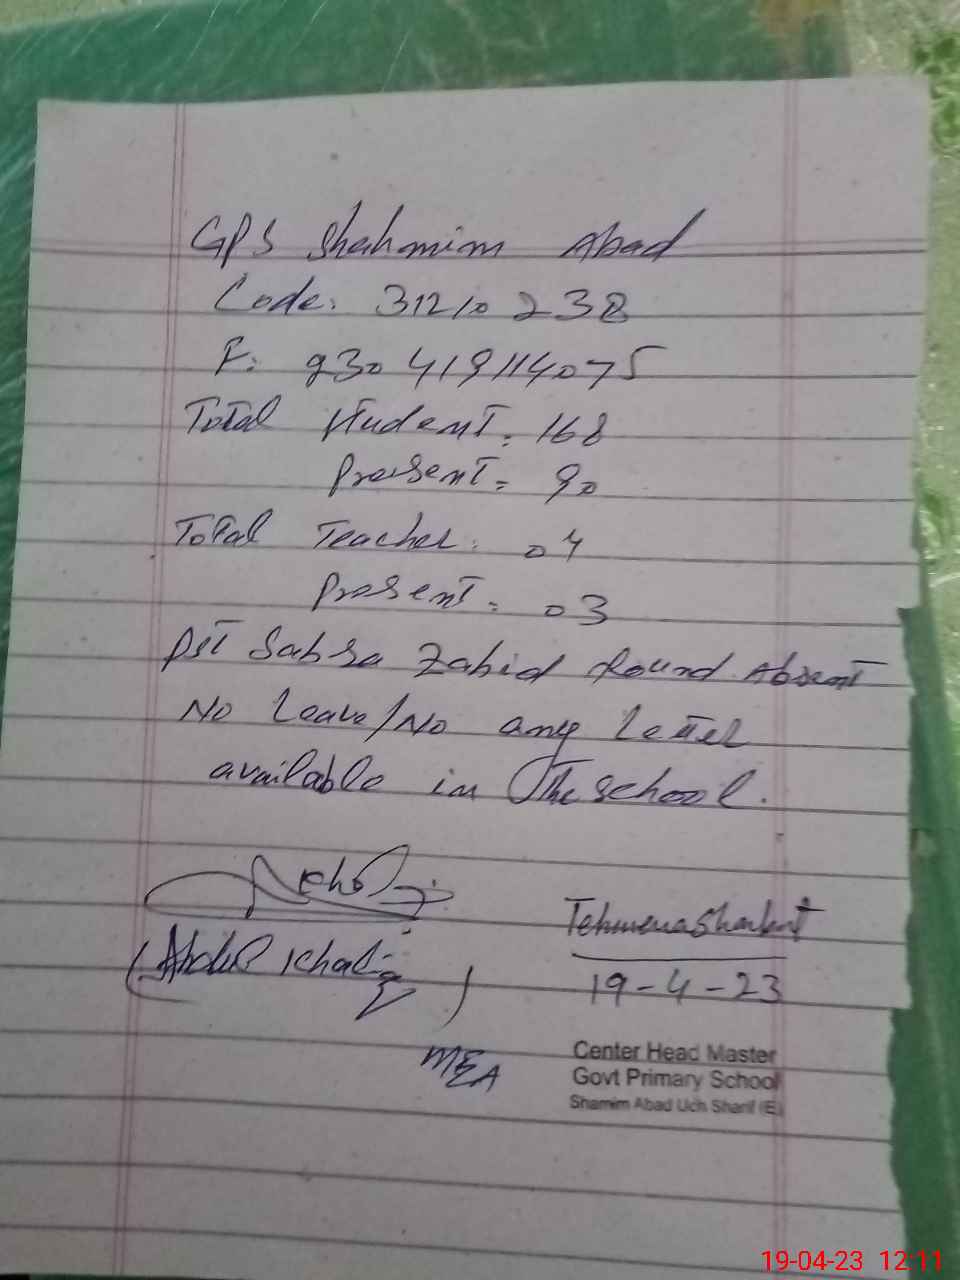 GPS Shahmim Abad
Code: 31210238
F: 930419114075
Total Student: 168
Present = 90
Total Teacher: 04
Present = 03
PST Sabra Zahid Found Absent
No Leave/No any Letter
available in The school.
(Abdul Khaliq)
Tehmena Sharbat
19-4-23
MEA
Center Head Master
Govt Primary School
Shamim Abad Uch Sharif (E)
19-04-23 12:11